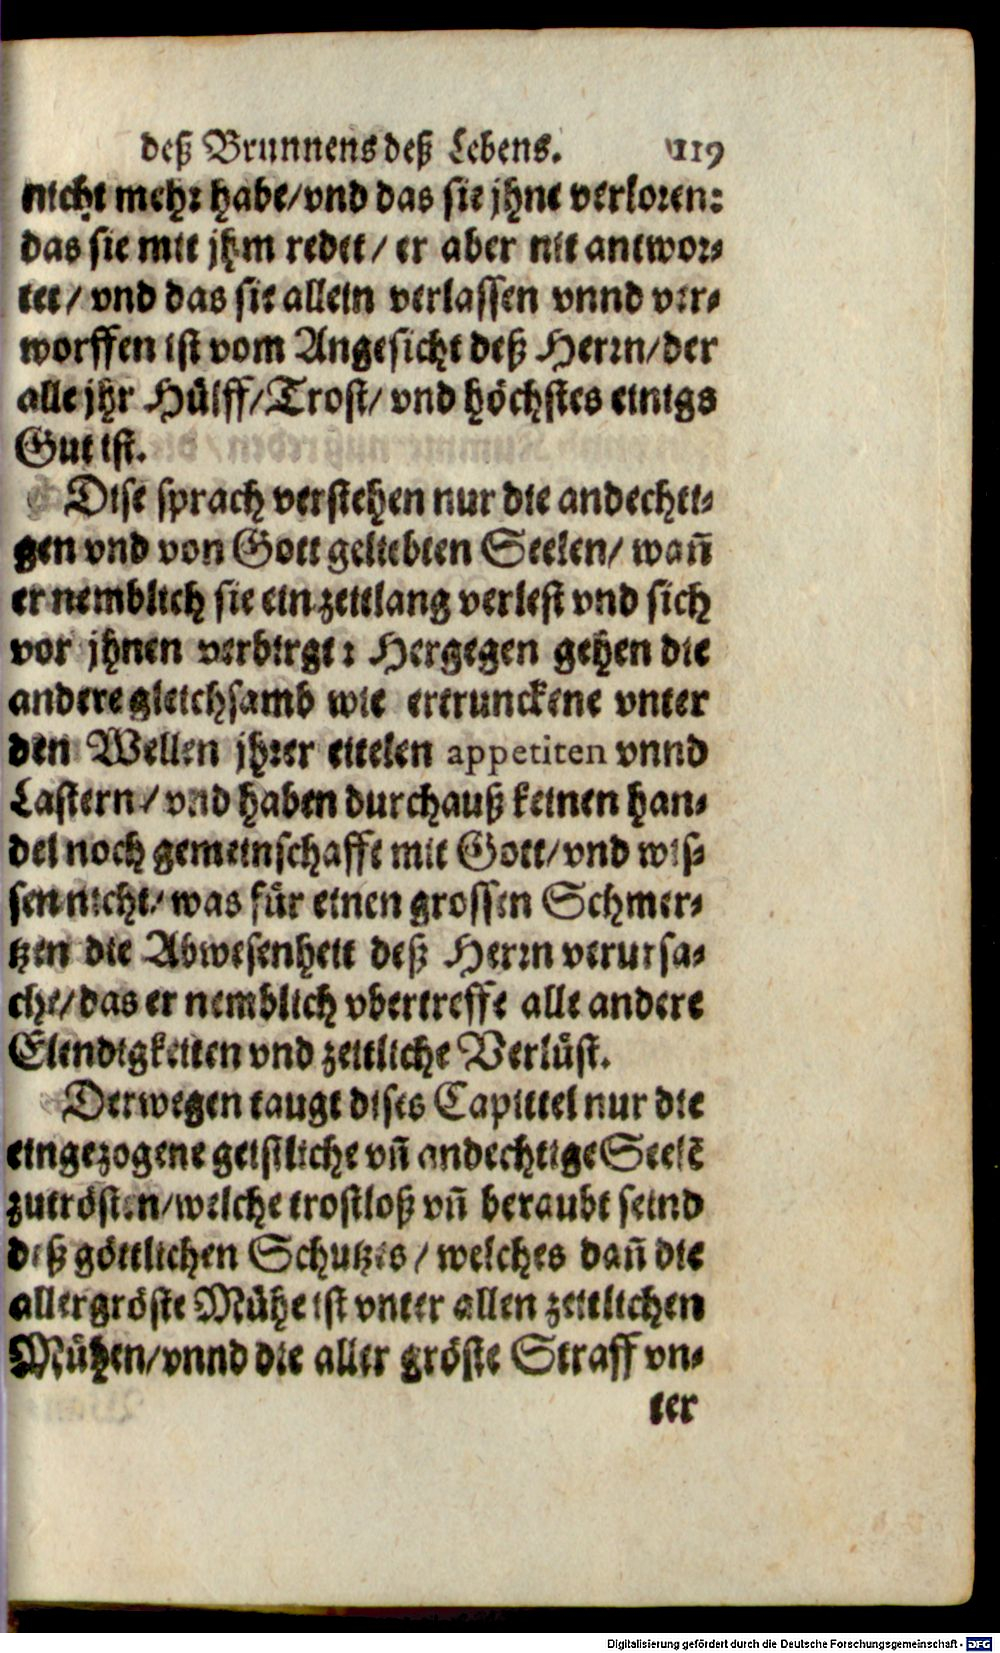 deß Brunnens deß Lebens. 119
nicht mehr habe/vnd das sie jhne verloren:
das sie mit jhm redet/ er aber nit antwor-
tet/ vnd das sie allein verlassen vnnd ver-
worffen ist vom Angesicht deß Herrn/der
alle jhr Hülff/Trost/ vnd höchstes einigs
Gut ist.
Dise sprach verstehen nur die andechti-
gen vnd von Gott geliebten Seelen/ wañ
er nemblich sie ein zeitlang verlest vnd sich
vor jhnen verbirgt: Hergegen gehen die
andere gleichsamb wie ertrunckene vnter
den Wellen jhrer eitelen appetiten vnnd
Lastern/ vnd haben durchauß keinen han-
del noch gemeinschafft mit Gott/vnd wis-
sen nicht/ was für einen grossen Schmer-
tzen die Abwesenheit deß Herrn verursa-
che/das er nemblich vbertreffe alle andere
Elendigkeiten vnd zeitliche Verlüst.
Derwegen taugt dises Capittel nur die
eingezogene geistliche vñ andechtige Seelẽ
zutrösten/welche trostloß vñ beraubt seind
deß göttlichen Schutzes/ welches dañ die
allergröste Mühe ist vnter allen zeitlichen
Mühen/vnnd die aller gröste Straff vn-
ter
Digitalisierung gefördert durch die Deutsche Forschungsgemeinschaft - DFG